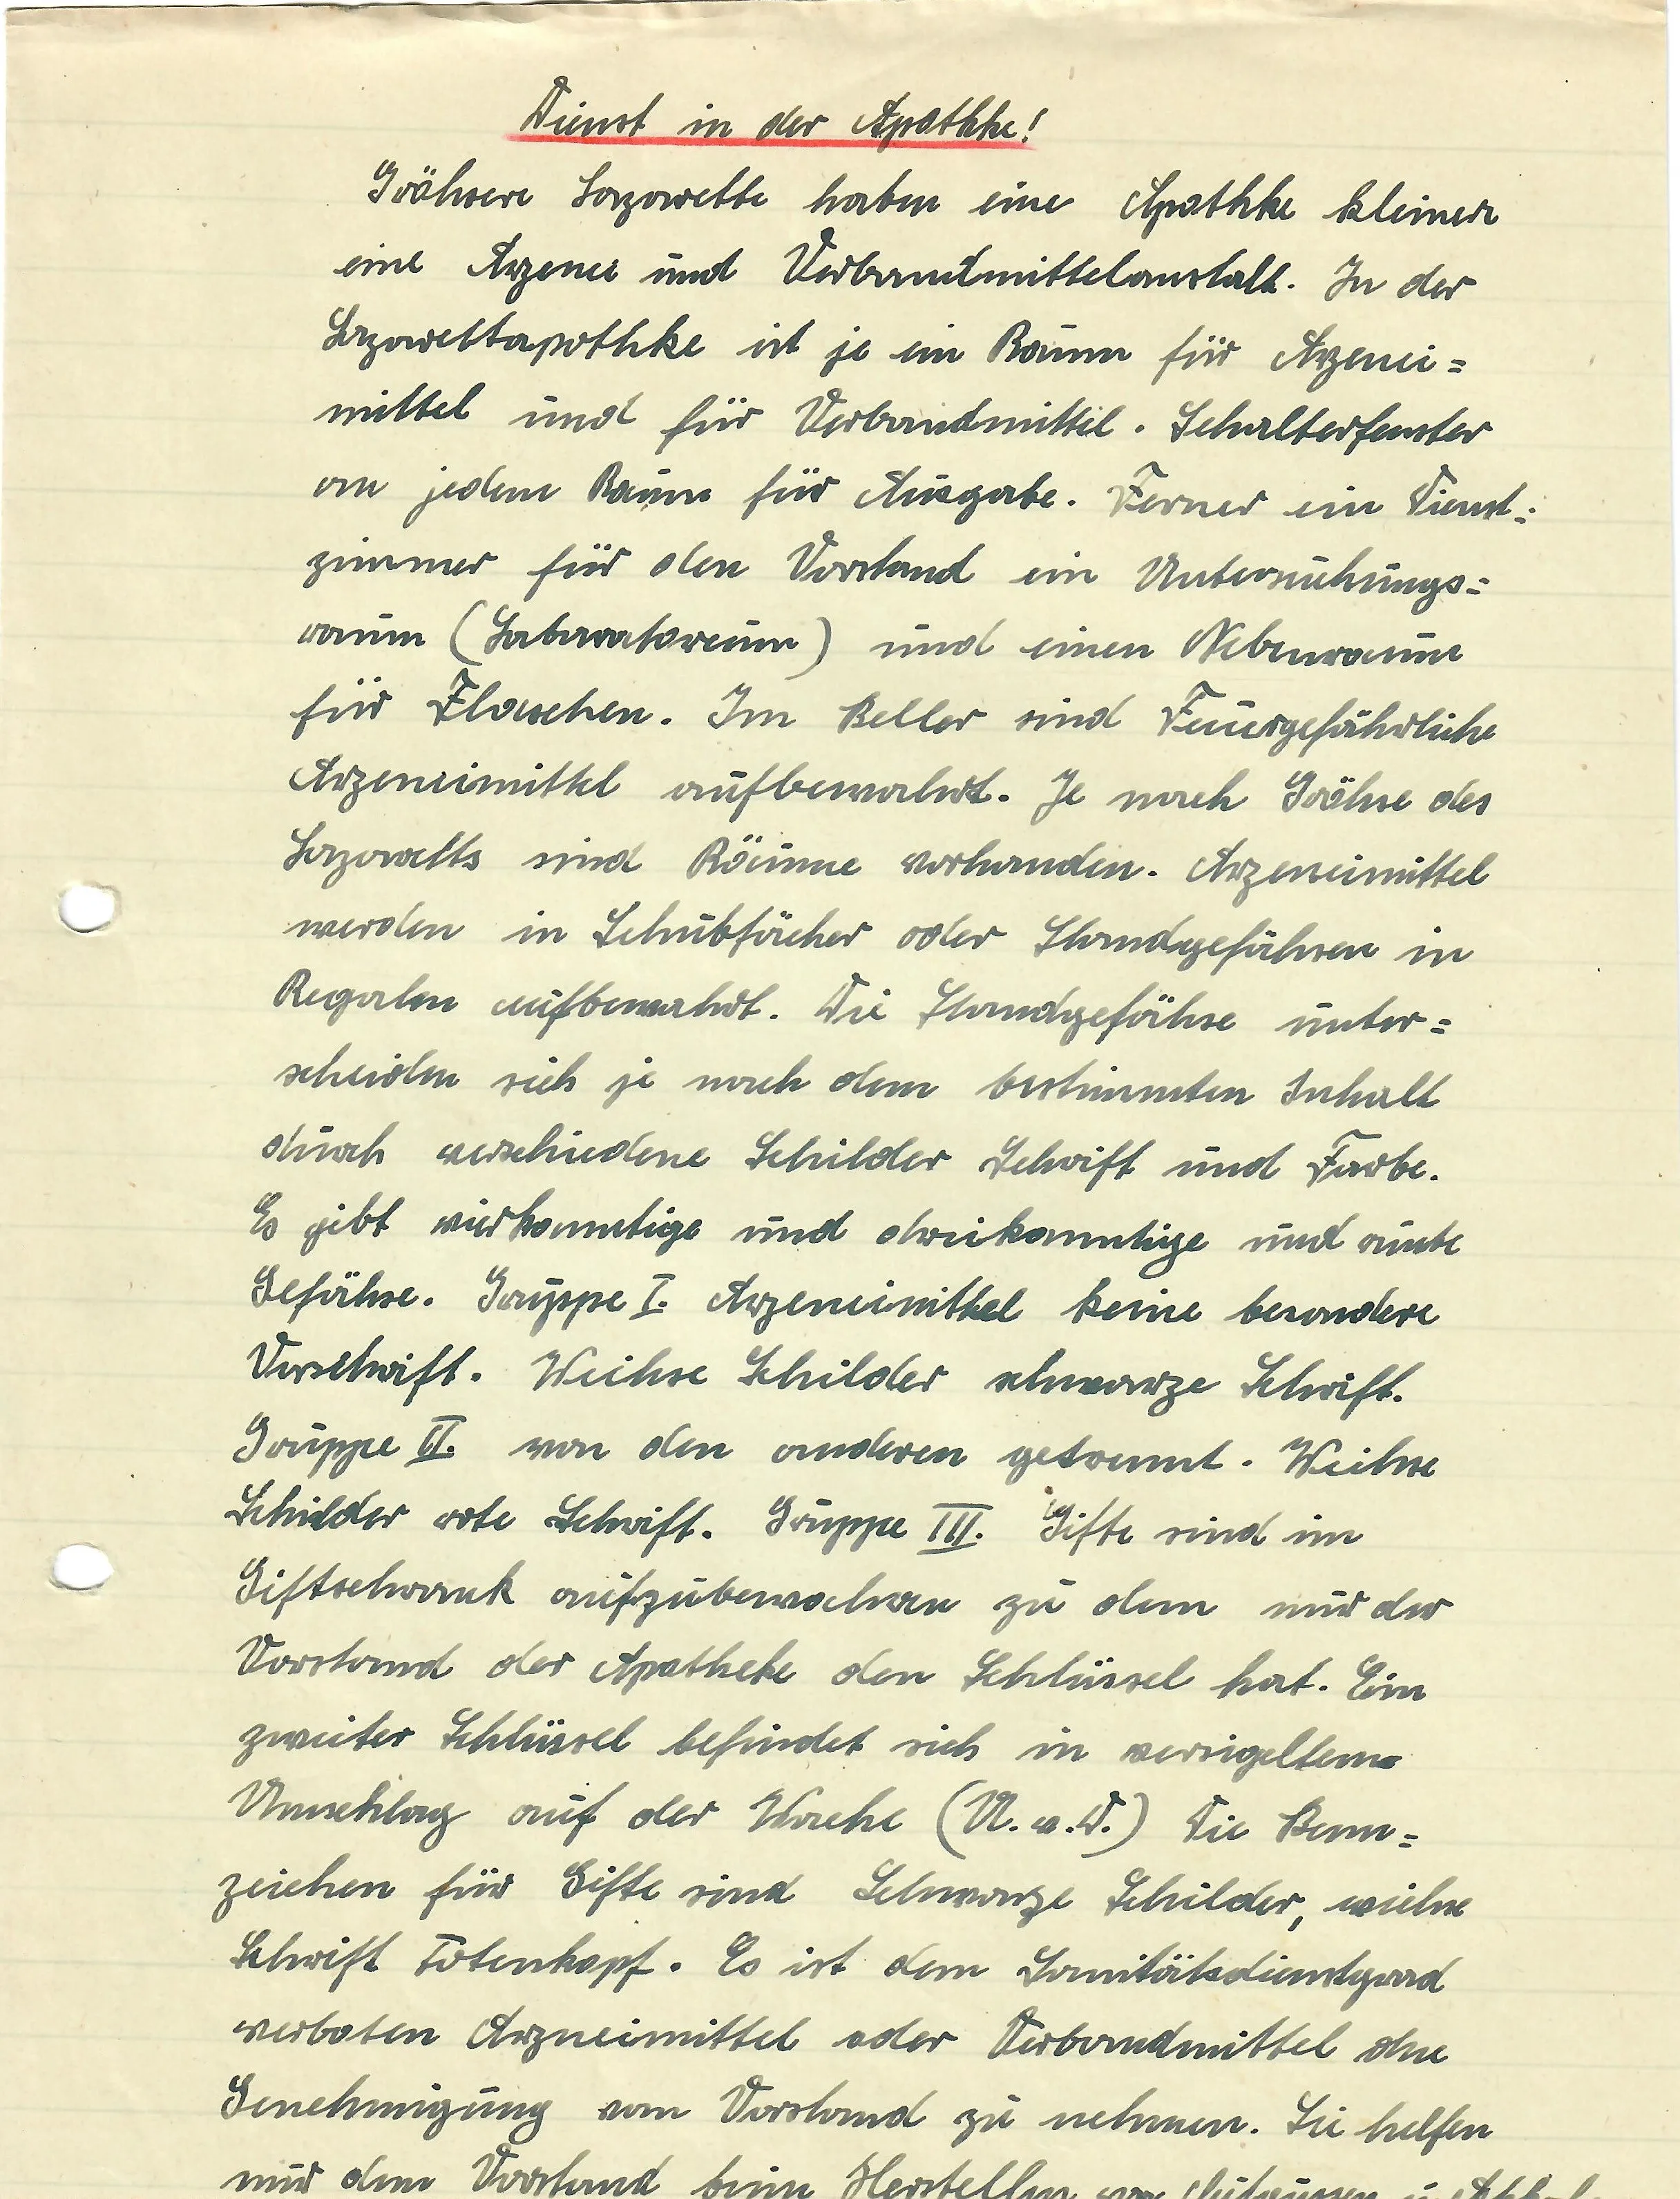 Dienst in der Apothke!
Gröhsere Lazarette haben eine Apothke kleinere
eine Arzenei und Verbandmittelanstalt. In der
Lazarettapothke ist je ein Raum für Arzenei=
mittel und für Verbandmittel. Schalterfenster
an jedem Raum für Ausgabe. Ferner ein Dienst=
zimmer für den Vorstand ein Untersuchungs=
raum (Labaratoreium) und einen Nebenraum
für Flaschen. Im Keller sind Feuergefährliche
Arzeneimittel aufbewahrt. Je nach Gröhse des
Lazaretts sind Räume vorhanden. Arzeneimittel
werden in Schubfächer oder Standgefähsen in
Regalen aufbewahrt. Die Standgefähse unter=
scheiden sich je nach dem bestimmten Inhalt
durch verschiedene Schilder Schrift und Farbe.
Es gibt vierkanntige und dreikanntige und runte
Gefähse. Gruppe I. Arzeneimittel keine besondere
Vorschrift. Weihse Schilder schwarze Schrift.
Gruppe II. von den anderen getrennt. Weihse
Schilder rote Schrift. Gruppe III. Gifte sind im
Giftschrank aufzubewahren zu dem nur der
Vorstand der Apotheke den Schlüssel hat. Ein
zweiter Schlüssel befindet sich in versigeltem
Umschlag auf der Wache (U. v. D.) Die Kenn=
zeichen für Gifte sind Schwarze Schilder, weihse
Schrift Totenkopf. Es ist dem Sanitätsdienstgrad
verboten Arzneimittel oder Verbandmittel ohne
Genehmigung vom Vorstand zu nehmen. Sie helfen
nur dem Vorstand beim Herstellen von